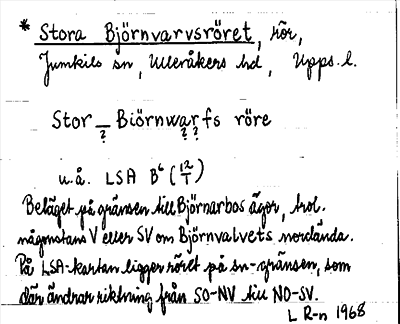 * Stora Björnvarvsröret, rör,
Jumkils sn, Ulleråkers hd, Upps. l.
Stor_Biörnwarfs röre
? ? ?
u.å. LSA B⁶ (12/T)
Beläget på gränsen till Björnarbos ägor, trol.
någonstans V eller SV om Björnvalvets nordända.
På LSA-kartan ligger röret på sn-gränsen, som
där ändrar riktning från SO-NV till NO-SV.
L R-n 1968